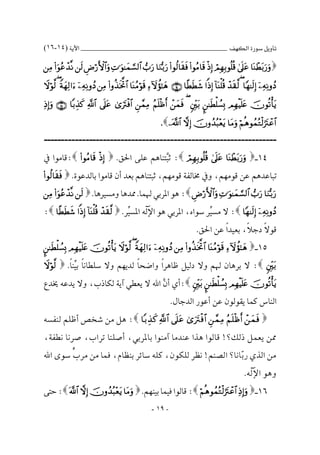 تأويل سورة الكهف ـــــــــــــــــــــــــــــــــــــــ الآية (١٤-١٦)
﴿ وَرَبَطْنَا عَلَىٰ قُلُوبِهِمْ إِذْ قَامُوا۟ فَقَالُوا۟ رَبُّنَا رَبُّ ٱلسَّمَـٰوَٰتِ وَٱلْأَرْضِ لَن نَّدْعُوَا۟ مِن
دُونِهِۦٓ إِلَـٰهًا ۖ لَّقَدْ قُلْنَآ إِذًا شَطَطًا ﴿١٤﴾ هَـٰٓؤُلَآءِ قَوْمُنَا ٱتَّخَذُوا۟ مِن دُونِهِۦٓ ءَالِهَةً ۖ لَّوْلَا
يَأْتُونَ عَلَيْهِم بِسُلْطَـٰنٍۭ بَيِّنٍ ۖ فَمَنْ أَظْلَمُ مِمَّنِ ٱفْتَرَىٰ عَلَى ٱللَّهِ كَذِبًا ﴿١٥﴾ وَإِذِ
ٱعْتَزَلْتُمُوهُمْ وَمَا يَعْبُدُونَ إِلَّا ٱللَّهَ ﴾.
١٤ـ ﴿ وَرَبَطْنَا عَلَىٰ قُلُوبِهِمْ ﴾: ثبَّتناهم على الحق. ﴿ إِذْ قَامُوا۟ ﴾: قاموا في
تباعدهم عن قومهم، وفي مخالفة قومهم، ثبتناهم بعد أن قاموا بالدعوة. ﴿ فَقَالُوا۟
رَبُّنَا رَبُّ ٱلسَّمَـٰوَٰتِ وَٱلْأَرْضِ ﴾: هو المربي لهما. ممدها ومسيرها. ﴿ لَن نَّدْعُوَا۟ مِن
دُونِهِۦٓ إِلَـٰهًا ﴾: لا مسيِّر سواه، المربي هو الإۤلٓه المسيِّر. ﴿ لَّقَدْ قُلْنَآ إِذًا شَطَطًا ﴾:
قولاً دجلاً، بعيداً عن الحق.
١٥ـ ﴿ هَـٰٓؤُلَآءِ قَوْمُنَا ٱتَّخَذُوا۟ مِن دُونِهِۦٓ ءَالِهَةً ۖ لَّوْلَا يَأْتُونَ عَلَيْهِم بِسُلْطَـٰنٍۭ
بَيِّنٍ ﴾: لا برهان لهم ولا دليل ظاهراً واضحاً لديهم ولا سلطاناً بيِّناً. ﴿ لَّوْلَا
يَأْتُونَ عَلَيْهِم بِسُلْطَـٰنٍۭ بَيِّنٍ ﴾: أي أنَّ الله لا يعطي آية لكاذب، ولا يدعه يخدع
الناس كما يقولون عن أعور الدجال.
﴿ فَمَنْ أَظْلَمُ مِمَّنِ ٱفْتَرَىٰ عَلَى ٱللَّهِ كَذِبًا ﴾: هل من شخص أظلم لنفسه
ممن يعمل ذلك؟! قالوا هذا عندما آمنوا بالمربي، أصلنا تراب، صرنا نطفة،
من الذي ربَّانا؟ الصنم! نظر للكون، كله سائر بنظام، فما من مربٍّ سوى الله
وهو الإۤلٓه.
١٦ـ ﴿ وَإِذِ ٱعْتَزَلْتُمُوهُمْ ﴾: قالوا فيما بينهم. ﴿ وَمَا يَعْبُدُونَ إِلَّا ٱللَّهَ ﴾: حتى
- ١٩ -